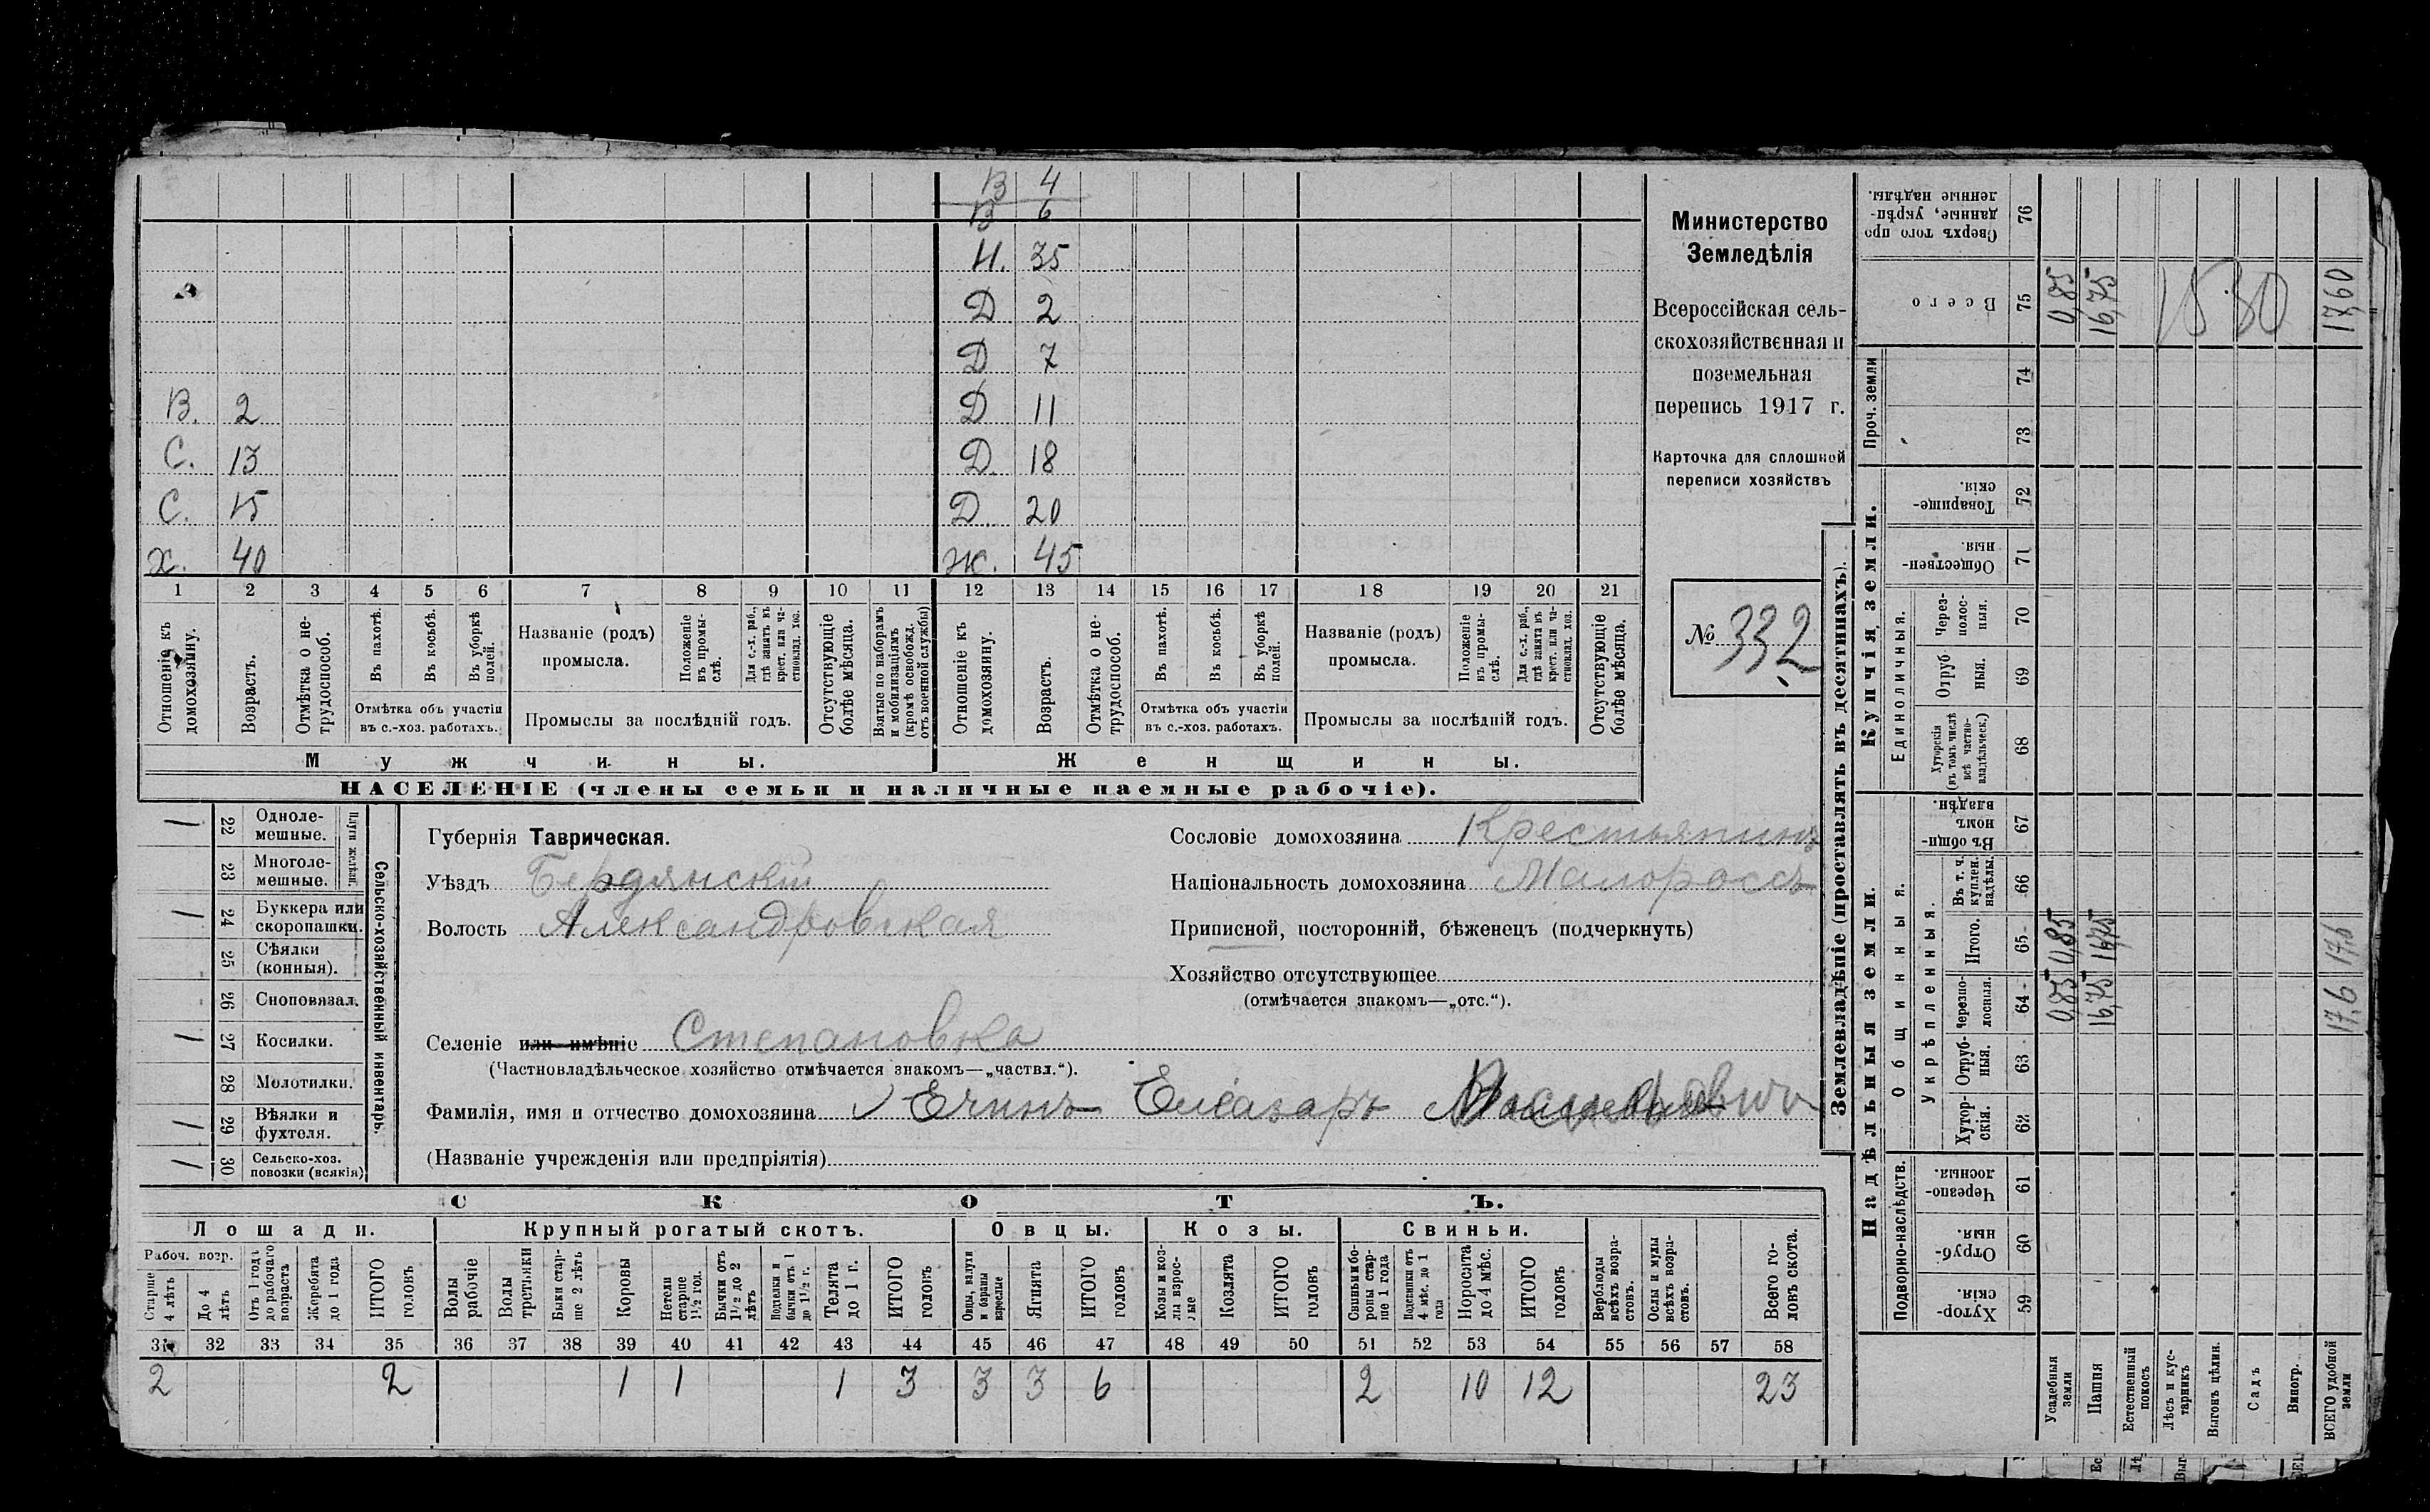 В 4
В 6
Н. 35
Д 2
Д 7
В. 2 Д 11
С. 13 Д. 18
С. 15 Д. 20
Х. 40 Ж. 45
1 2 3 4 5 6 7 8 9 10 11 12 13 14 15 16 17 18 19 20 21
Отношеніе къ домохозяину.
Возрастъ.
Отмѣтка о нетрудоспособ.
Въ пахотѣ.
Въ косьбѣ.
Въ уборкѣ полей.
Отмѣтка объ участіи
въ с.-хоз. работахъ.
Названіе (родъ)
промысла.
Положеніе въ промыслѣ.
Для с.-х. раб., гдѣ занятъ въ крест. или частновлад. хоз.
Промыслы за послѣдній годъ.
Отсутствующіе болѣе мѣсяца.
Взятые по наборамъ и мобилизаціямъ (кромѣ освобожд. отъ военной службы)
Отношеніе къ домохозяину.
Возрастъ.
Отмѣтка о нетрудоспособ.
Въ пахотѣ.
Въ косьбѣ.
Въ уборкѣ полей.
Отмѣтка объ участіи
въ с.-хоз. работахъ.
Названіе (родъ)
промысла.
Положеніе въ промыслѣ.
Для с.-х. раб., гдѣ занята въ крест. или частновлад. хоз.
Промыслы за послѣдній годъ.
Отсутствующіе болѣе мѣсяца.
Мужчины.
Женщины.
НАСЕЛЕНІЕ (члены семьи и наличные наемные рабочіе).
Министерство
Земледѣлія
Всероссійская сель-
скохозяйственная и
поземельная
перепись 1917 г.
Карточка для сплошной
переписи хозяйствъ
№ 332
Сельско-хозяйственный инвентарь.
Плуги желѣзн.
1 22 Одноле-
мешные.
23 Многоле-
мешные.
1 24 Буккера или
скоропашки.
25 Сѣялки
(конныя).
26 Сноповязал.
1 27 Косилки.
28 Молотилки.
1 29 Вѣялки и
фухтеля.
1 30 Сельско-хоз.
повозки (всякія)
Губернія Таврическая.
Уѣздъ Бердянскій
Волость Александровская
Сословіе домохозяина Крестьянинъ
Національность домохозяина Малороссъ
Приписной, посторонній, бѣженецъ (подчеркнуть)
Хозяйство отсутствующее
(отмѣчается знакомъ—„отс.“).
Селеніе или имѣніе Степановка
(Частновладѣльческое хозяйство отмѣчается знакомъ—„частвл.“).
Фамилія, имя и отчество домохозяина Ечинъ Елеазаръ
(Названіе учрежденія или предпріятія)
СКОТЪ.
Лошади. Крупный рогатый скотъ. Овцы. Козы. Свиньи.
Рабоч. возр.
Старше 4 лѣтъ
До 4 лѣтъ
Отъ 1 года до рабочаго возраста
Жеребята до 1 года
ИТОГО головъ
Волы рабочіе
Волы третьяки
Быки старше 2 лѣтъ
Коровы
Нетели старше 1½ год.
Бычки отъ 1½ до 2 лѣтъ
Подтелки и бычки отъ 1 до 1½ г.
Телята до 1 г.
ИТОГО головъ
Овцы, валухи и бараны взрослые
Ягнята
ИТОГО головъ
Козы и козлы взрослые
Козлята
ИТОГО головъ
Свиньи и боровы старше 1 года
Подсвинки отъ 4 мѣс. до 1 года
Поросята до 4 мѣс.
ИТОГО головъ
Верблюды всѣхъ возрастовъ.
Ослы и мулы всѣхъ возрастовъ.
Всего головъ скота.
31 32 33 34 35 36 37 38 39 40 41 42 43 44 45 46 47 48 49 50 51 52 53 54 55 56 57 58
2 2 1 1 1 3 3 3 6 2 10 12 23
Землевладѣніе (проставлять въ десятинахъ).
Надѣльныя земли.
Купчія земли.
Проч. земли
Подворно-наслѣдств.
Общинныя.
Укрѣпленныя.
Единоличныя.
Хутор-
скія. 59
Отруб-
ныя. 60
Черезпо-
лосныя. 61
Хутор-
скія. 62
Отруб-
ныя. 63
Черезпо-
лосныя. 64
Итого. 65
Въ т. ч. куплен. надѣлы. 66
Въ общи-
номъ
владѣн. 67
Хуторскія
(въ томъ числѣ
всѣ частно-
владѣльческ.) 68
Отруб
ныя. 69
Через-
полос-
ныя. 70
Обществен-
ныя. 71
Товарище-
скія. 72
73
74
Всего 75
Сверхъ того про
данные, укрѣп-
ленные надѣлы. 76
Усадебныя земли 0,85 0,85 0,85
Пашня 16,75 16,75 16,75
Естественный покосъ
Лѣсъ и кустарникъ
Выгонъ цѣлин.
Садъ
Виногр.
ВСЕГО удобной земли 17,6 17,6 17,60